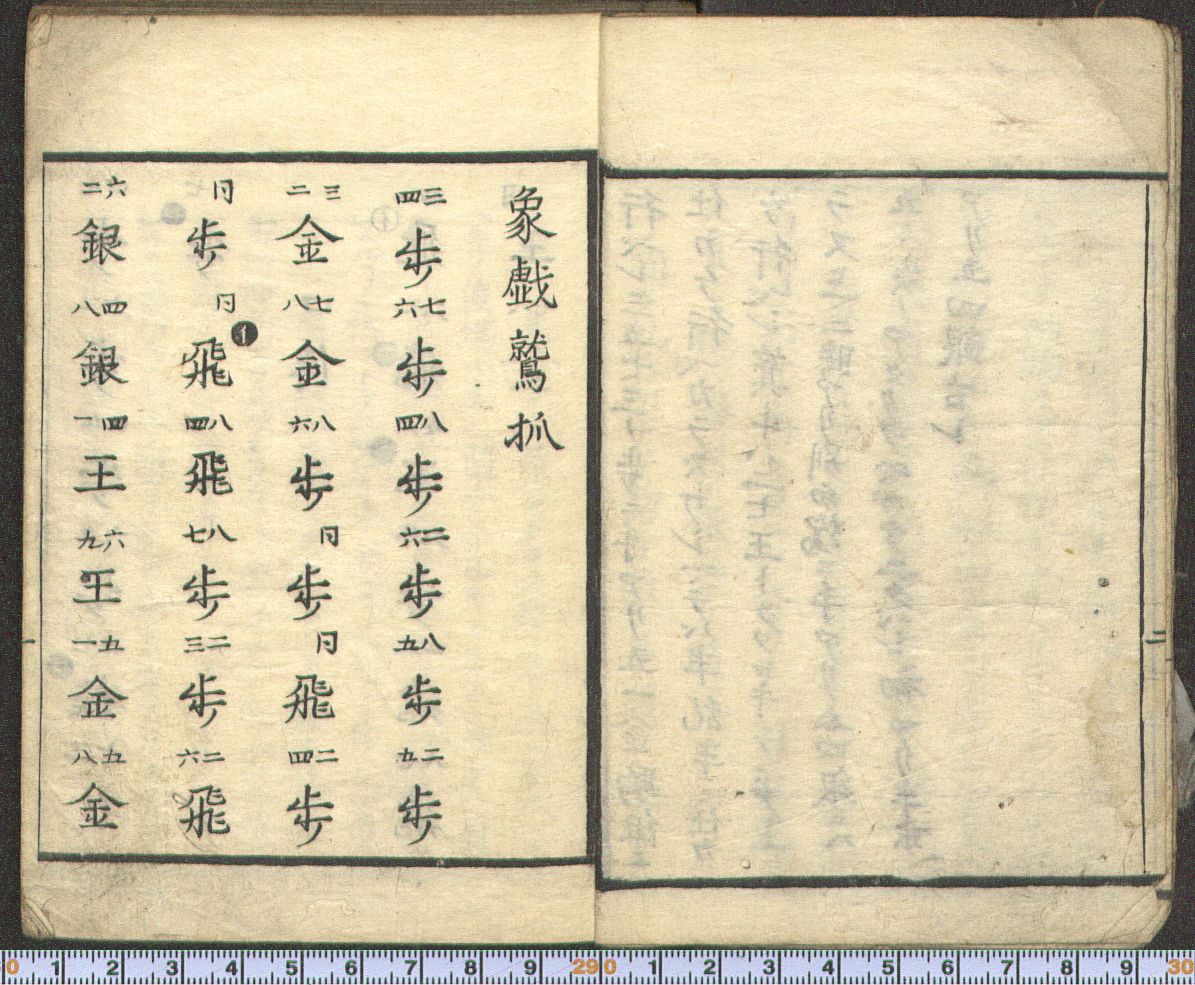 象戯鷲抓
三四歩七六歩八四歩二六歩八五歩二五歩
三二金七八金八六歩同歩同飛二四歩
同歩同飛❶八四飛八七歩二三歩二六飛
六二銀四八銀四一王六九王五一金五八金
二
0 1 2 3 4 5 6 7 8 9 29 0 1 2 3 4 5 6 7 8 9 30